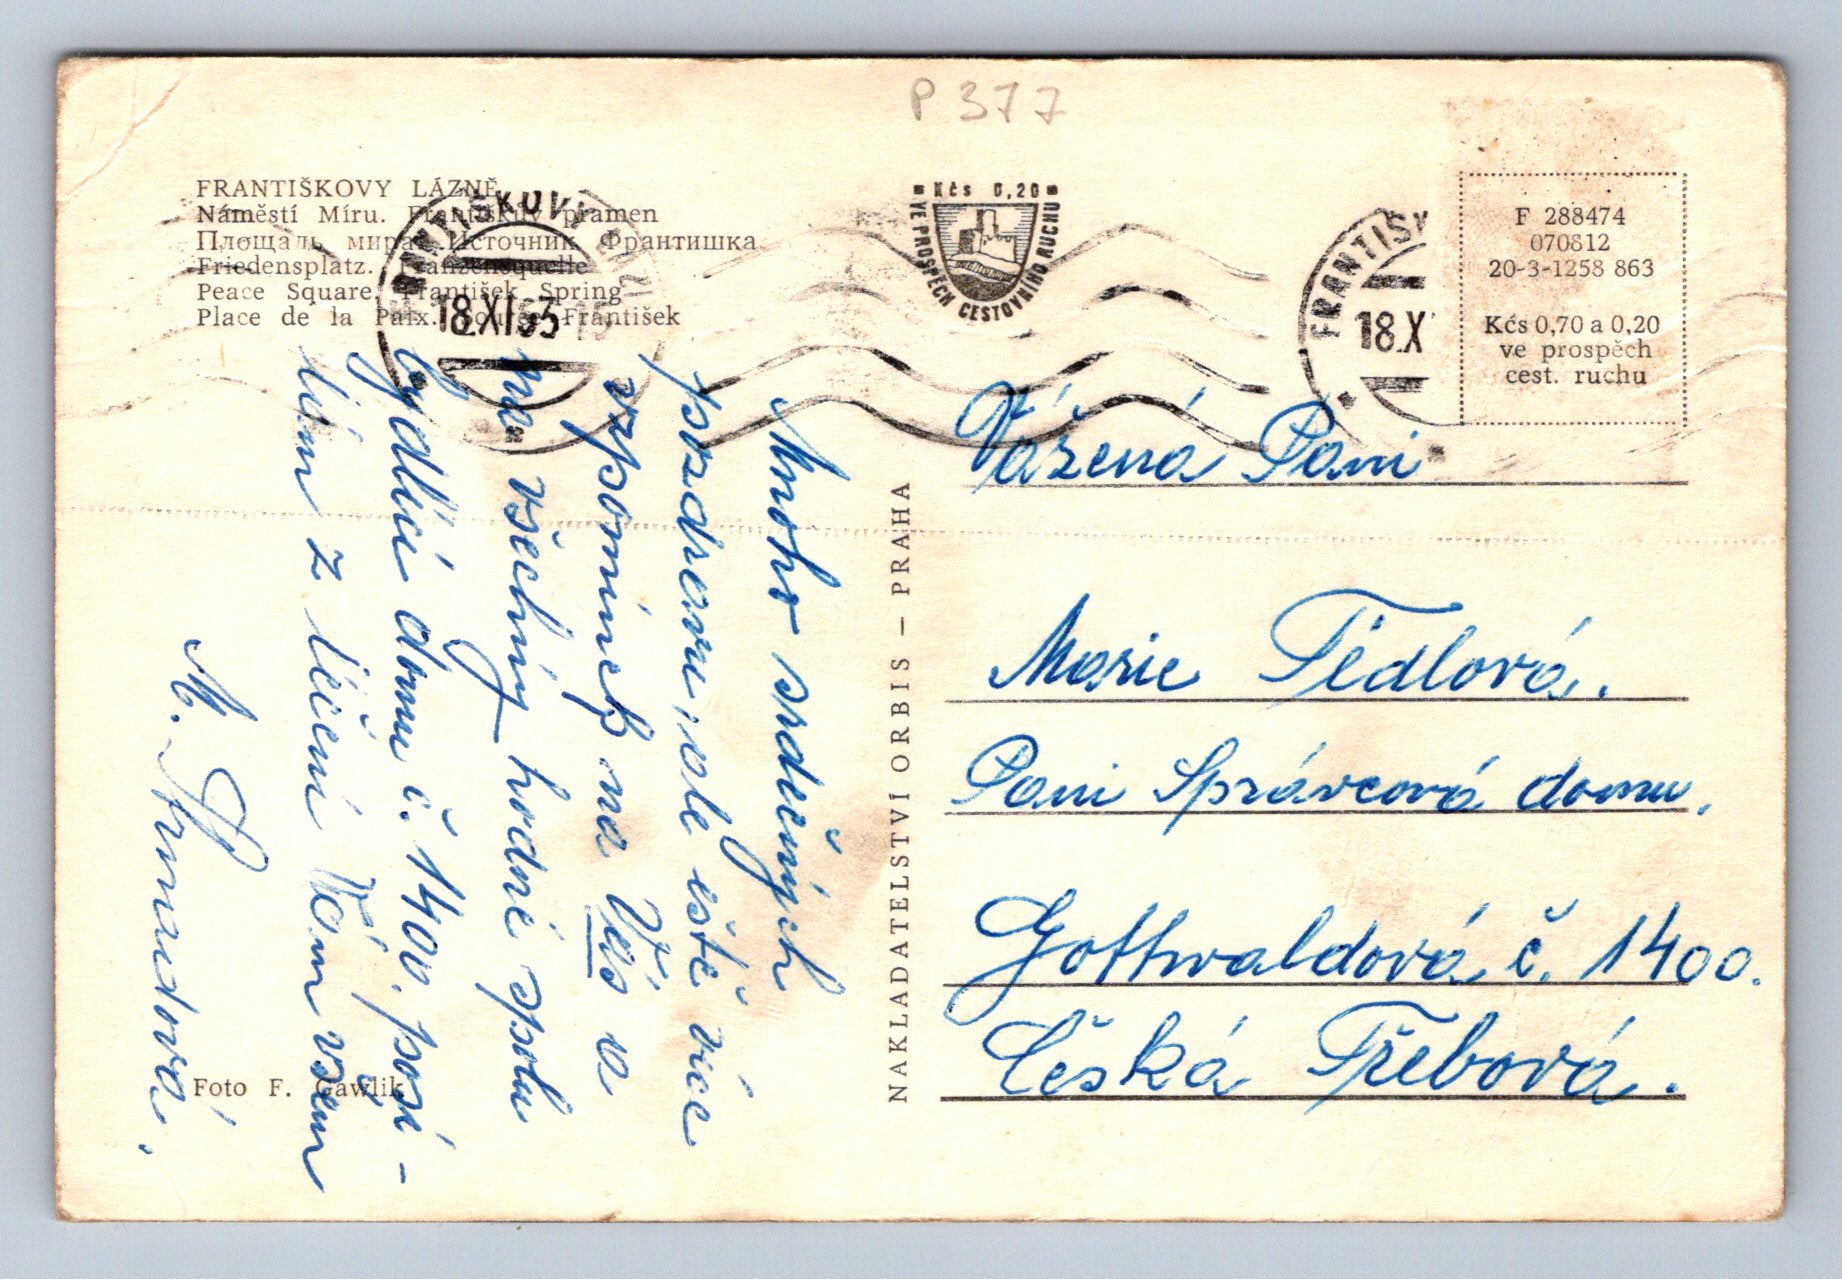 P 377
FRANTIŠKOVY LÁZNĚ
Náměstí Míru. Františkův pramen
Площадь мира. Источник Франтишка
Friedensplatz. Franzensquelle
Peace Square. František Spring
Place de la Paix. Source František
18.XI.63-15
Kčs 0,20
VE PROSPĚCH CESTOVNÍHO RUCHU
FRANTIŠK
18.X
F 288474
070812
20-3-1258 863
Kčs 0,70 a 0,20
ve prospěch
cest. ruchu
Mnoho srdečných
pozdravu, ale eště více
vzpomínek na Vás a
na všechny hodné spolu
bydlící domu č. 1400. posí-
lám z léčení Vám všem
M. Strnadová.
Foto F. Gawlik
NAKLADATELSTVÍ ORBIS – PRAHA
Vážená Paní
Marie Tédlová.
Paní Správcová domu.
Gottwaldová č. 1400.
Česká Třebová.